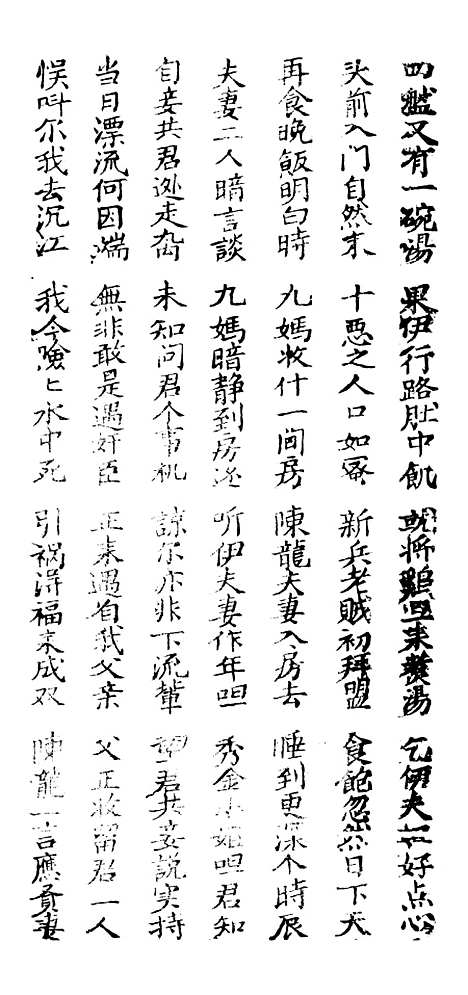 四盤又有一碗湯 果伊行路肚中飢 就将 来 湯 乞伊夫 好点心
头前入门自然来 十恶之人口如蜜 新兵老贼初拜盟 食飽忽然日下天
再食晚飯明白時 九媽收什一间房 陳龍夫妻入房去 睡到更深个時辰
夫妻二人暗言談 九媽暗静到房边 听伊夫妻作年呾 秀金小姐呾君知
自妾共君 走 未知问君个事机 諒尔亦非下流輩 望君共妾説实持
当日漂流何因端 無非敢是遇奸臣 正来遇着我父亲 父正收留君一人
悮叫尔我去沉江 我今險匕水中死 引祸得福来成双 陳龍一言應賢妻